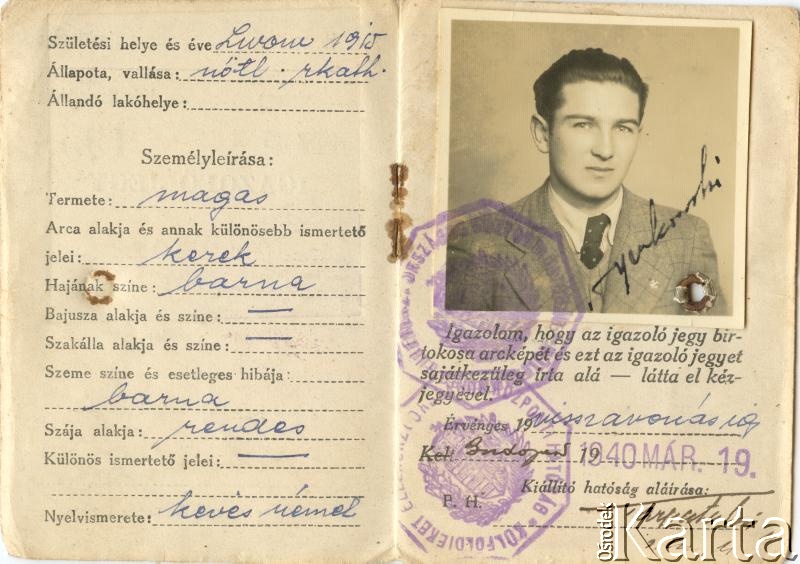 Születési helye és éve Lwow 1915
Állapota, vallása: nőtl. rkath.
Állandó lakóhelye:
Személyleírása:
Termete: magas
Arca alakja és annak különösebb ismertető
jelei: kerek
Hajának színe: barna
Bajusza alakja és színe: —
Szakálla alakja és színe: —
Szeme színe és esetleges hibája:
barna
Szája alakja: rendes
Különös ismertető jelei: —
Nyelvismerete: kevés német
Igazolom, hogy az igazoló jegy bir-
tokosa arcképét és ezt az igazoló jegyet
sajátkezüleg írta alá — látta el kéz-
jegyével.
Érvényes 19 visszavonásig
Kelt 19 1940 MÁR. 19.
Kiállító hatóság aláírása:
P. H.
KÜLFÖLDIEKET ELLENŐRZŐ
Ośrodek
Karta